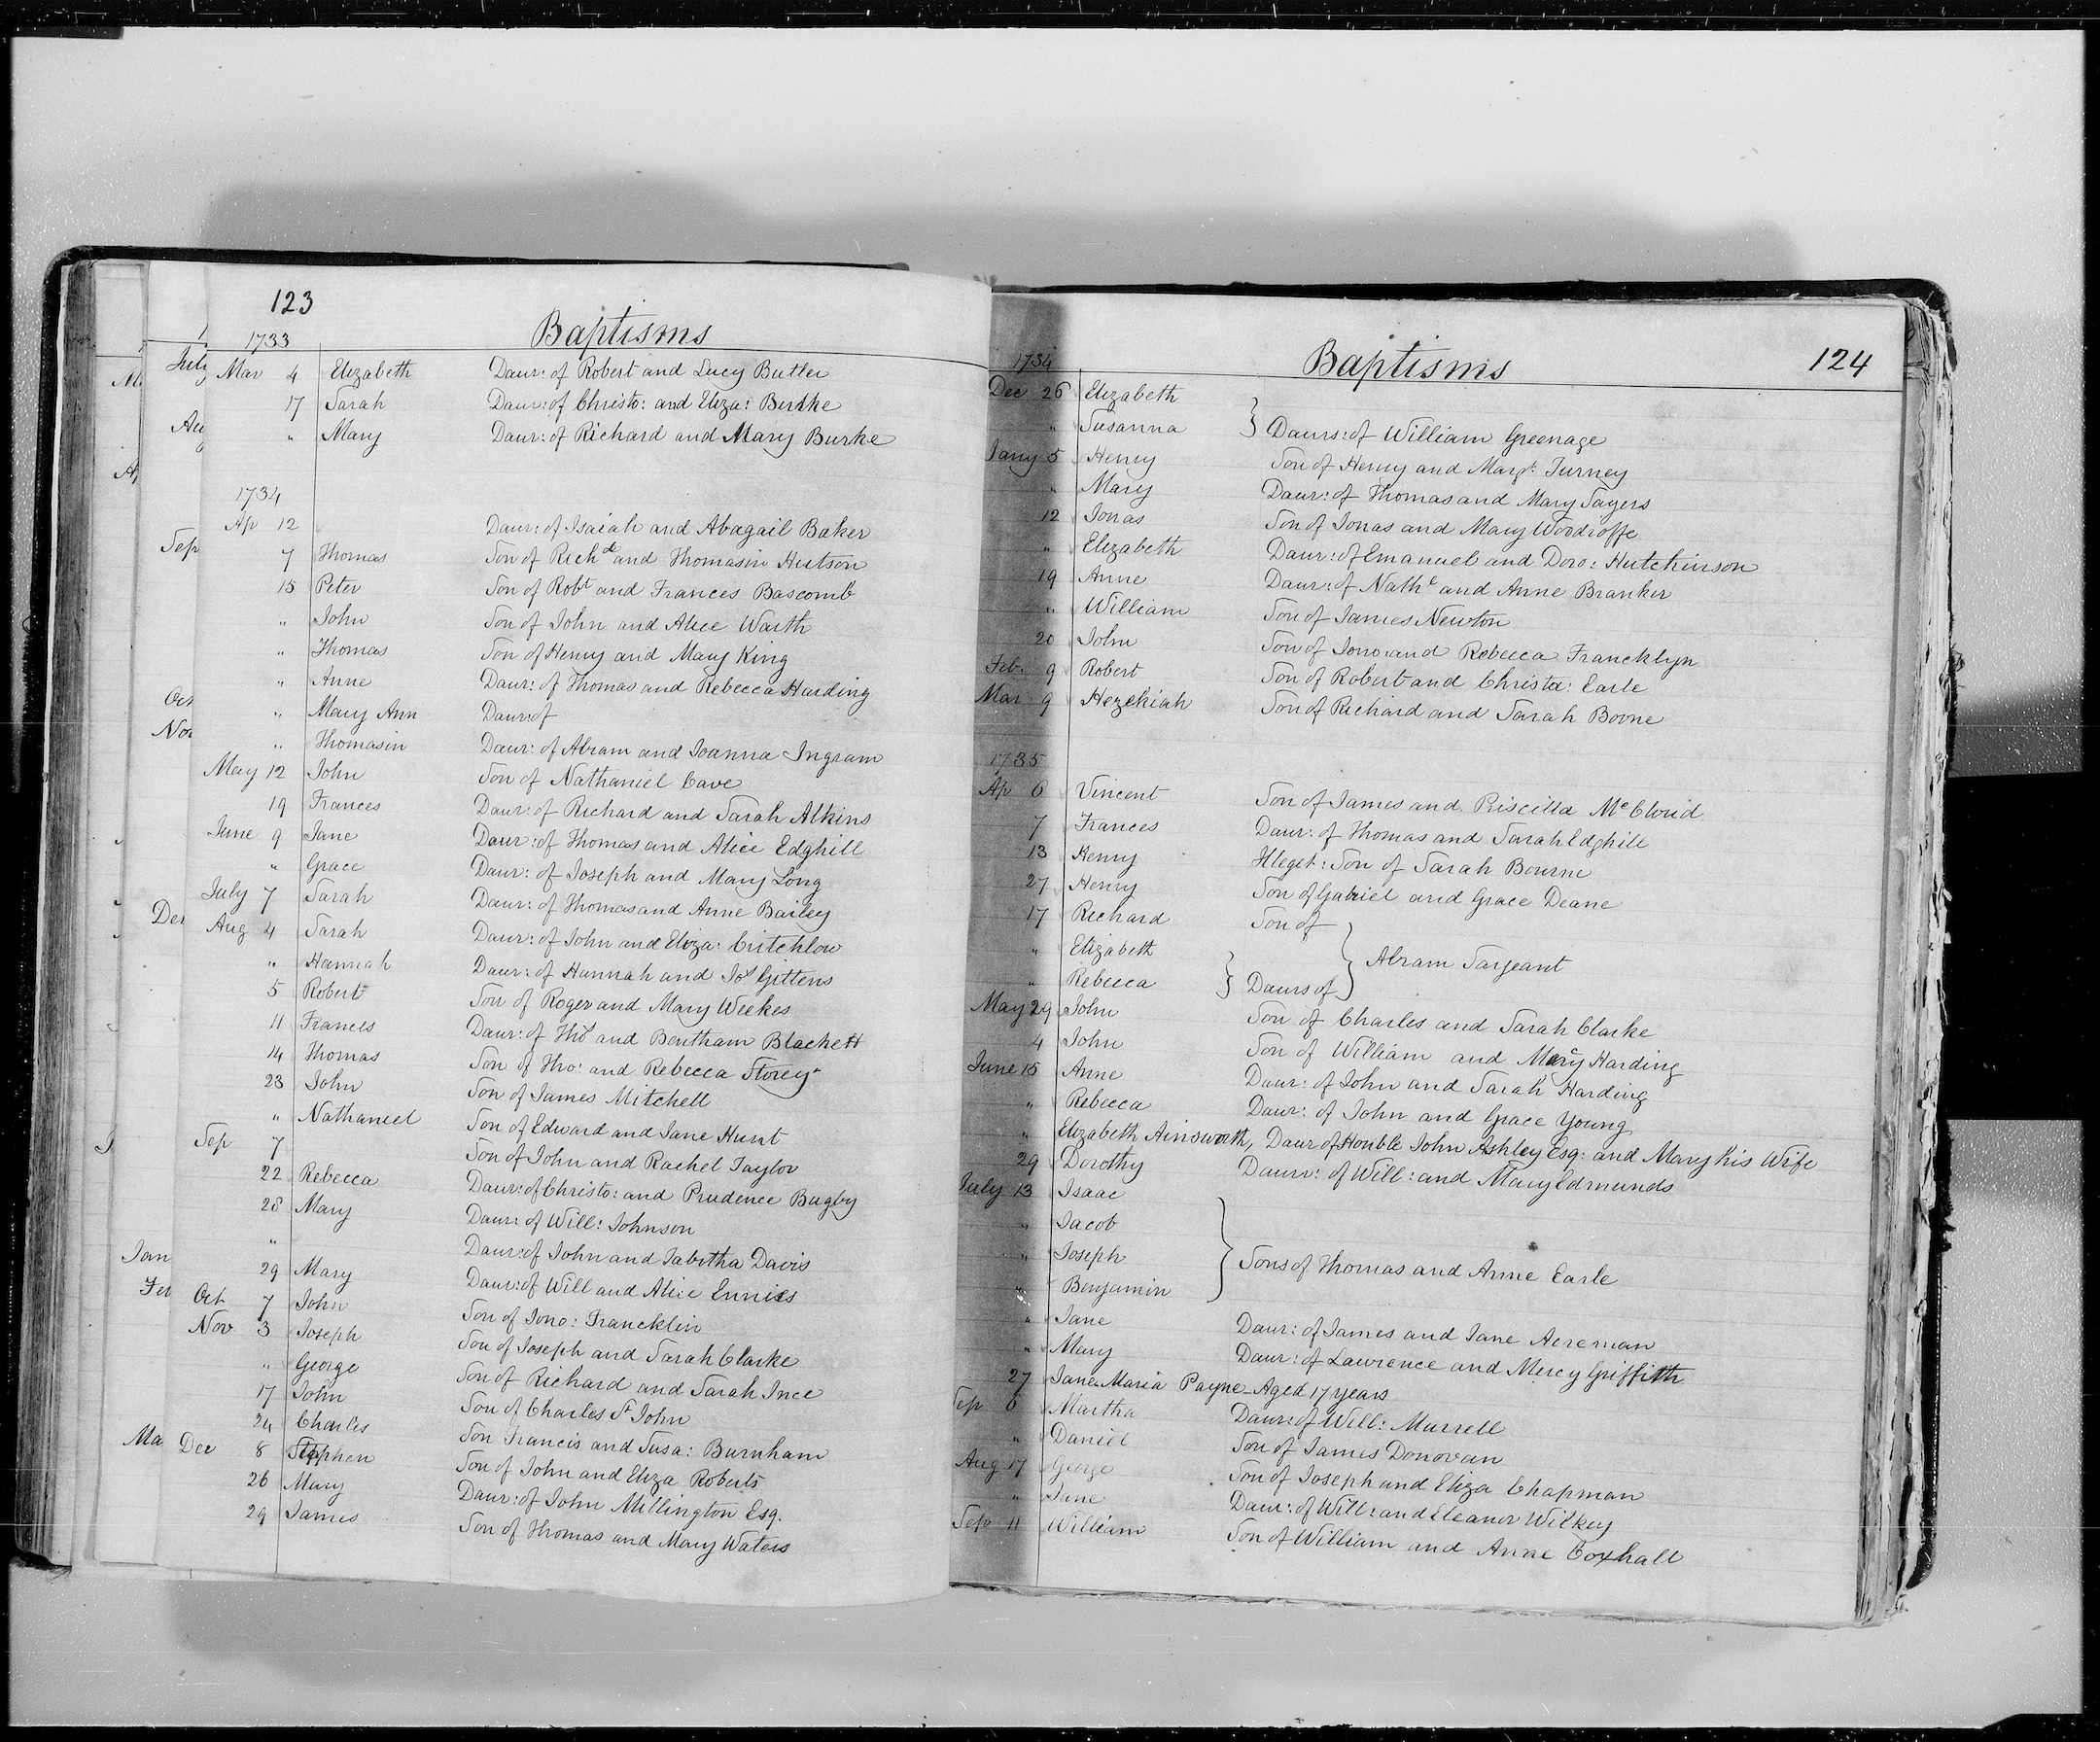 123
1733 Baptisms
Mar 4 Elizabeth Daur: of Robert and Lucy Butler
17 Sarah Daur: of Christo: and Eliza: Burke
" Mary Daur: of Richard and Mary Burke
1734
Ap 12 Daur: of Isaiah and Abagail Baker
7 Thomas Son of Richd and Thomasin Hutson
15 Peter Son of Robt and Frances Bascomb
" John Son of John and Alice Warth
" Thomas Son of Henry and Mary King
" Anne Daur: of Thomas and Rebecca Harding
" Mary Ann Daur: of
" Thomasin Daur: of Abram and Joanna Ingram
May 12 John Son of Nathaniel Cave
19 Frances Daur: of Richard and Sarah Atkins
June 9 Jane Daur: of Thomas and Alice Edghill
" Grace Daur: of Joseph and Mary Long
July 7 Sarah Daur: of Thomas and Anne Bailey
Aug 4 Sarah Daur: of John and Eliza: Critchlow
" Hannah Daur: of Hannah and Jos Gittens
5 Robert Son of Roger and Mary Weekes
11 Frances Daur: of Tho: and Bentham Blackett
14 Thomas Son of Tho: and Rebecca Storey
23 John Son of James Mitchell
" Nathaniel Son of Edward and Jane Hunt
Sep 7 Son of John and Rachel Taylor
22 Rebecca Daur: of Christo: and Prudence Bugby
28 Mary Daur: of Will: Johnson
" Daur: of John and Tabitha Davis
29 Mary Daur: of Will and Alice Ennies
Oct 7 John Son of Jono: Francklin
Nov 3 Joseph Son of Joseph and Sarah Clarke
" George Son of Richard and Sarah Ince
17 John Son of Charles St John
24 Charles Son Francis and Susa: Burnham
Dec 8 Stephen Son of John and Eliza Roberts
26 Mary Daur: of John Millington Esq.
29 James Son of Thomas and Mary Waters
1734 Baptisms 124
Dec 26 Elizabeth
" Susanna } Daurs: of William Greenage
Jany 5 Henry Son of Henry and Margt: Turney
" Mary Daur: of Thomas and Mary Sayers
12 Jonas Son of Jonas and Mary Woodroffe
" Elizabeth Daur: of Emanuel and Doro: Hutchinson
19 Anne Daur: of Nathl and Anne Branker
" William Son of James Newton
20 John Son of Jono: and Rebecca Francklyn
Feb. 9 Robert Son of Robert and Christa: Earle
Mar 9 Hezekiah Son of Richard and Sarah Boone
1735
Ap 6 Vincent Son of James and Priscilla McCloud
7 Frances Daur: of Thomas and Sarah Edghill
13 Henry Illeget: Son of Sarah Bourne
27 Henry Son of Gabriel and Grace Deane
17 Richard Son of
" Elizabeth } Abram Sargeant
" Rebecca } Daurs of
May 29 John Son of Charles and Sarah Clarke
4 John Son of William and Mary Harding
June 15 Anne Daur: of John and Sarah Harding
" Rebecca Daur: of John and Grace Young
" Elizabeth Ainsworth, Daur of Honble John Ashley Esq: and Mary his Wife
29 Dorothy Daur: of Will: and Mary Edmunds
July 13 Isaac
" Jacob
" Joseph } Sons of Thomas and Anne Earle
" Benjamin
" Jane Daur: of James and Jane Aereman
" Mary Daur: of Lawrence and Mercy Griffith
27 Jane Maria Payne - Aged 17 years
Sep 6 Martha Daur: of Will: Murrell
" Daniel Son of James Donovan
Aug 17 George Son of Joseph and Eliza Chapman
" Jane Daur: of Will: and Eleanor Wilkey
Sep 11 William Son of William and Anne Coxhall